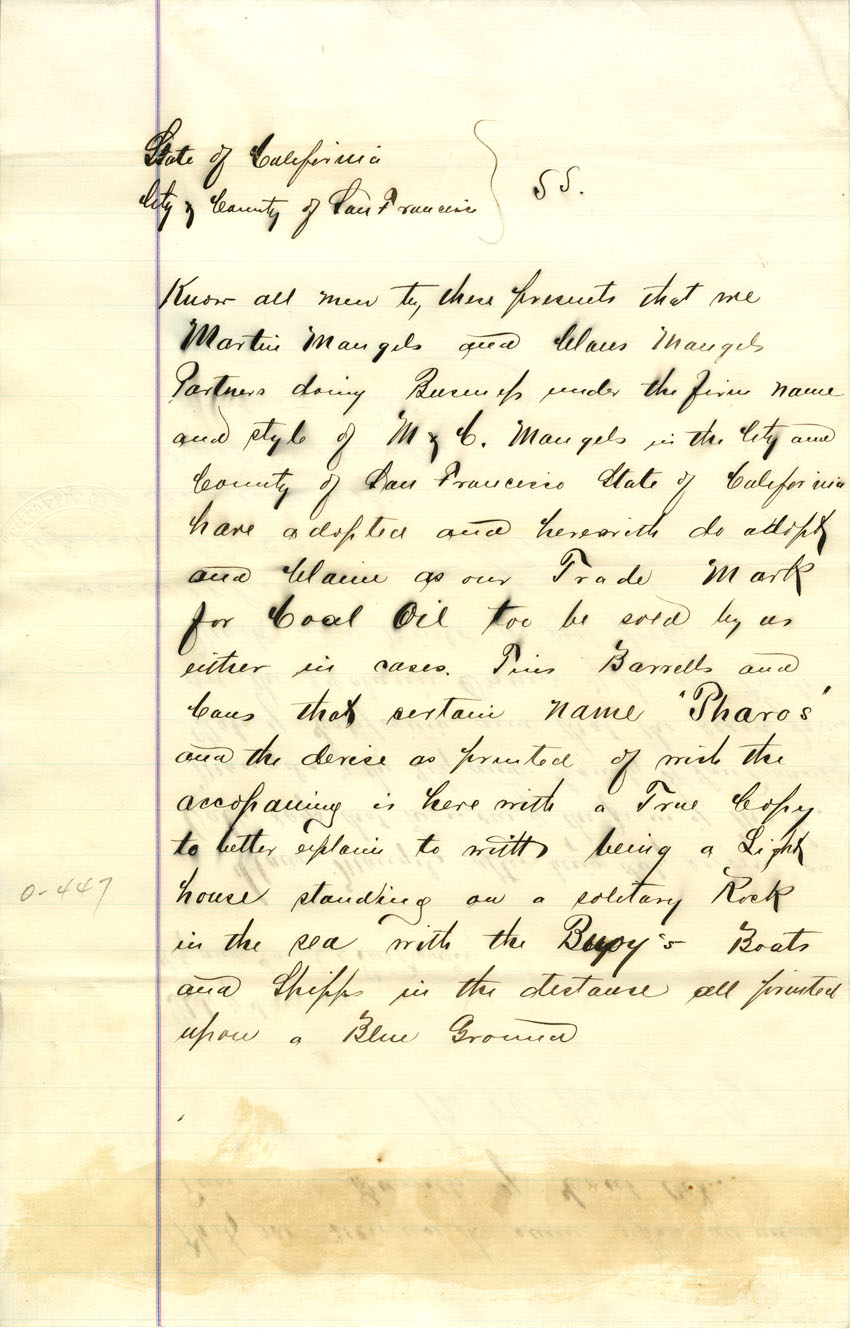 State of California
City & County of San Francisco } SS.
Know all men by these presents that we
Martin Mangels and Claus Mangels
Partners doing Business under the firm name
and style of M & C. Mangels in the City and
County of San Francisco State of California
have adopted and herewith do adopt
and Claim as our Trade Mark
for Coal Oil too be sold by us
either in cases. Tins Barrells and
Cans that certain name "Pharos"
and the devise as printed of wich the
accopaning is here with a True Copy
to better explain to witt being a Light
house standing on a solitary Rock
0-447
in the sea with the Buoy's Boats
and Shipps in the distance all printed
upon a Blue Ground